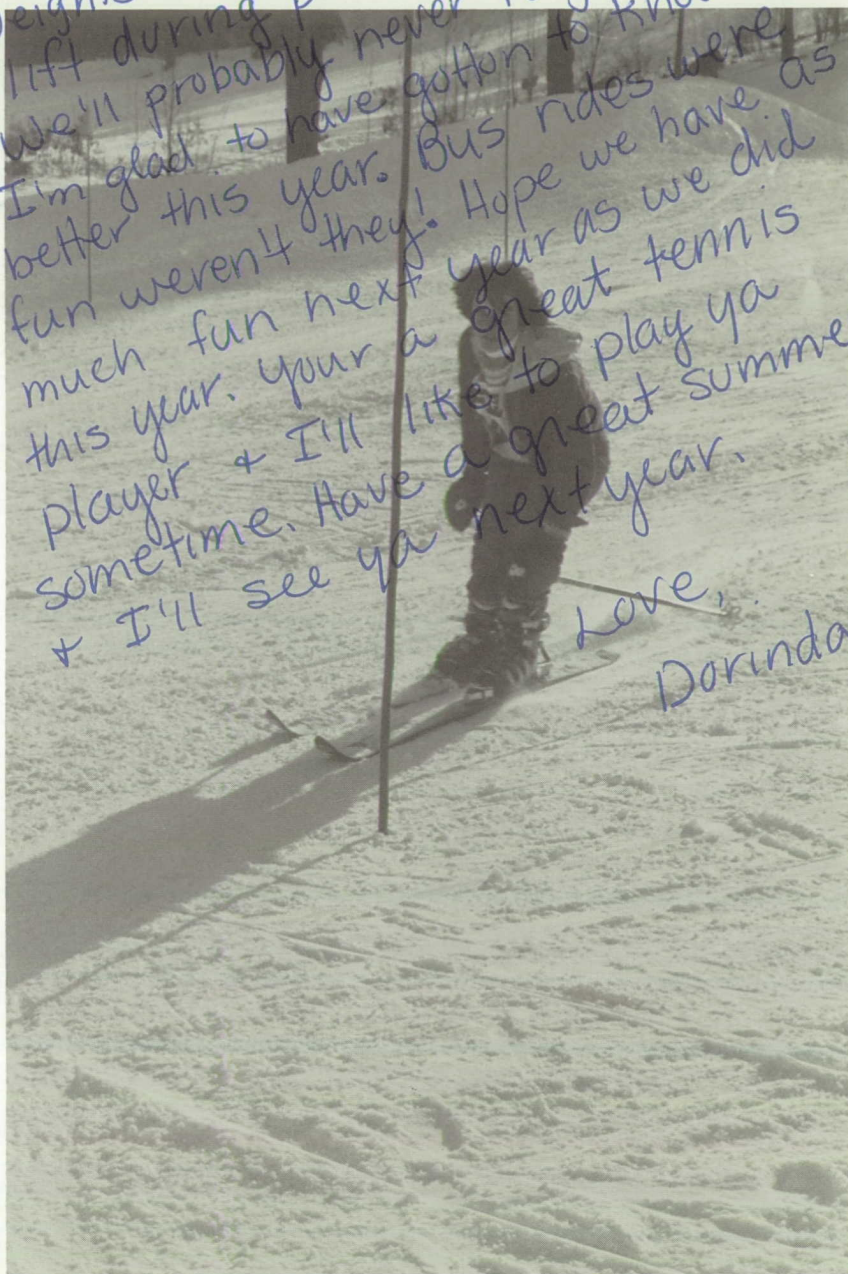 lift during
We'll probably never
I'm glad to have gotton to
better this year. Bus rides were
fun weren't they! Hope we have as
much fun next year as we did
this year. Your a great tennis
player & I'll like to play ya
sometime. Have a great summe
& I'll see ya next year.
Love,
Dorinda